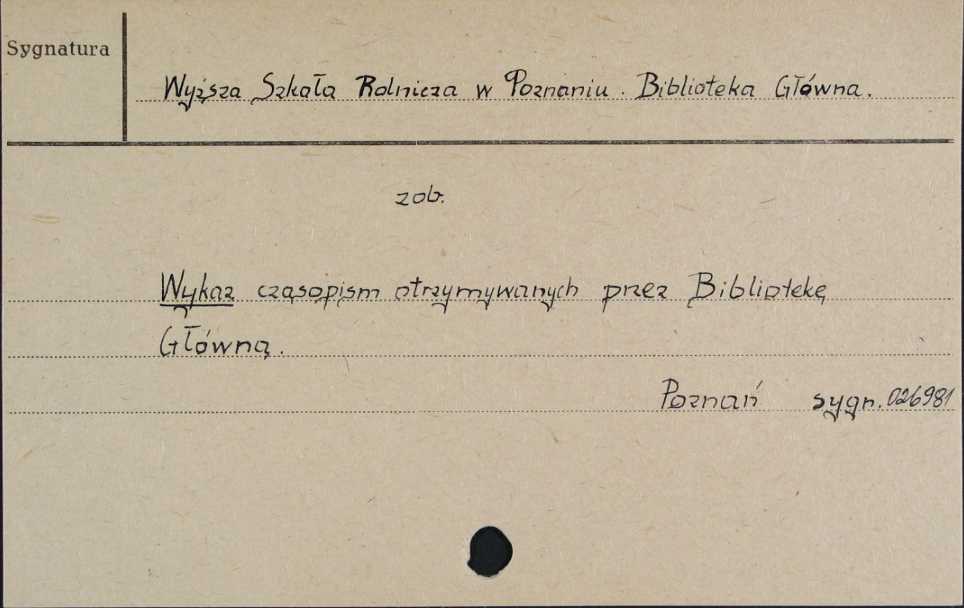 Sygnatura
Wyższa Szkoła Rolnicza w Poznaniu. Biblioteka Główna.
zob.
Wykaz czasopism otrzymywanych przez Bibliotekę
Główną.
Poznań sygn. 026981